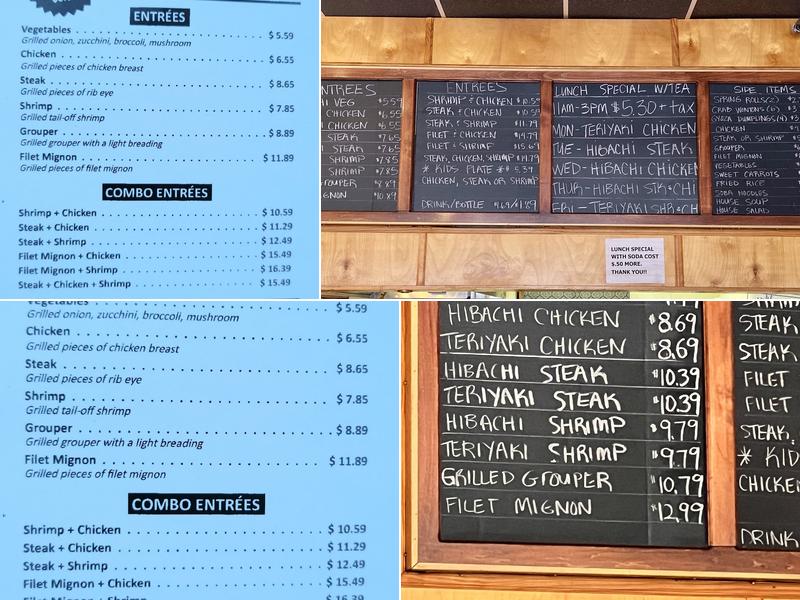 ENTRÉES
Vegetables $ 5.59
Grilled onion, zucchini, broccoli, mushroom
Chicken $ 6.55
Grilled pieces of chicken breast
Steak $ 8.65
Grilled pieces of rib eye
Shrimp $ 7.85
Grilled tail-off shrimp
Grouper $ 8.89
Grilled grouper with a light breading
Filet Mignon $ 11.89
Grilled pieces of filet mignon
COMBO ENTRÉES
Shrimp + Chicken $ 10.59
Steak + Chicken $ 11.29
Steak + Shrimp $ 12.49
Filet Mignon + Chicken $ 15.49
Filet Mignon + Shrimp $ 16.39
Steak + Chicken + Shrimp $ 15.49
NTREES
VEG $5.59
CHICKEN $6.55
CHICKEN $6.55
STEAK $7.65
STEAK $7.65
SHRIMP $7.85
SHRIMP $7.85
ROUPER $8.89
GNON $10.89
ENTREES
SHRIMP & CHICKEN $10.59
STEAK & CHICKEN $10.59
STEAK & SHRIMP $11.79
FILET & CHICKEN $14.79
FILET & SHRIMP $15.69
STEAK, CHICKEN, SHRIMP $14.79
* KIDS PLATE * $5.39
CHICKEN, STEAK OR SHRIMP
DRINK/BOTTLE $1.69/$1.89
LUNCH SPECIAL W/TEA
11AM-3PM $5.30 + tax
MON-TERIYAKI CHICKEN
TUE-HIBACHI STEAK
WED-HIBACHI CHICKEN
THUR-HIBACHI STK&CHI
FRI-TERIYAKI SHR&CH
SIDE ITEMS
SPRING ROLLS(2) $2
CRAB WONTONS (6) $3
GYOZA DUMPLINGS(4) $3
CHICKEN
STEAK OR SHRIMP
GROUPER
FILET MIGNON
VEGETABLES
SWEET CARROTS
FRIED RICE
SOBA NOODLES
HOUSE SOUP
HOUSE SALAD
LUNCH SPECIAL
WITH SODA COST
$.50 MORE.
THANK YOU!!
Vegetables $ 5.59
Grilled onion, zucchini, broccoli, mushroom
Chicken $ 6.55
Grilled pieces of chicken breast
Steak $ 8.65
Grilled pieces of rib eye
Shrimp $ 7.85
Grilled tail-off shrimp
Grouper $ 8.89
Grilled grouper with a light breading
Filet Mignon $ 11.89
Grilled pieces of filet mignon
COMBO ENTRÉES
Shrimp + Chicken $ 10.59
Steak + Chicken $ 11.29
Steak + Shrimp $ 12.49
Filet Mignon + Chicken $ 15.49
Filet Mignon + Shrimp $ 16.39
HIBACHI CHICKEN $8.69
TERIYAKI CHICKEN $8.69
HIBACHI STEAK $10.39
TERIYAKI STEAK $10.39
HIBACHI SHRIMP $9.79
TERIYAKI SHRIMP $9.79
GRILLED GROUPER $10.79
FILET MIGNON $12.99
STEAK
STEAK
FILET
FILET
STEAK,
* KID
CHICKEN
DRINK